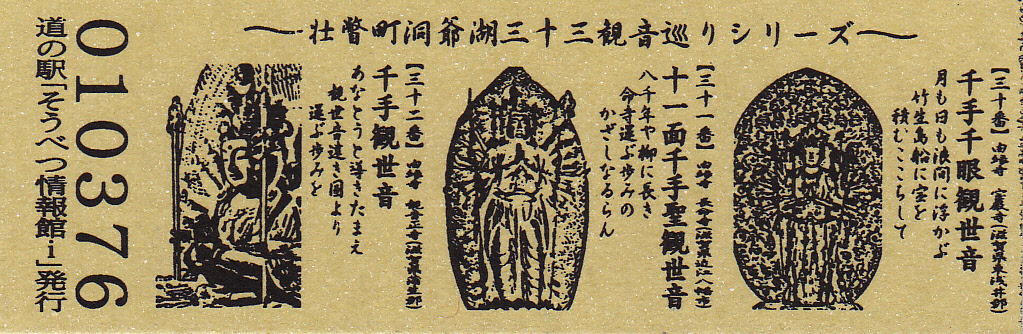 〜壮瞥町洞爺湖三十三観音巡りシリーズ〜
【三十番】由緒寺 宝厳寺(滋賀県東浅井郡)
千手千眼観世音
月も日も浪間に浮かぶ
竹生島船に宝を
積むここちして
【三十一番】由緒寺 長命寺(滋賀県近江八幡市)
十一面千手聖観世音
八千年や柳に長き
命寺運ぶ歩みの
かざしなるらん
【三十二番】由緒寺 観音正寺(滋賀県蒲生郡)
千手観世音
あなとうと導きたまえ
観世音遠き国より
運ぶ歩みを
010376
道の駅「そうべつ情報館i」発行